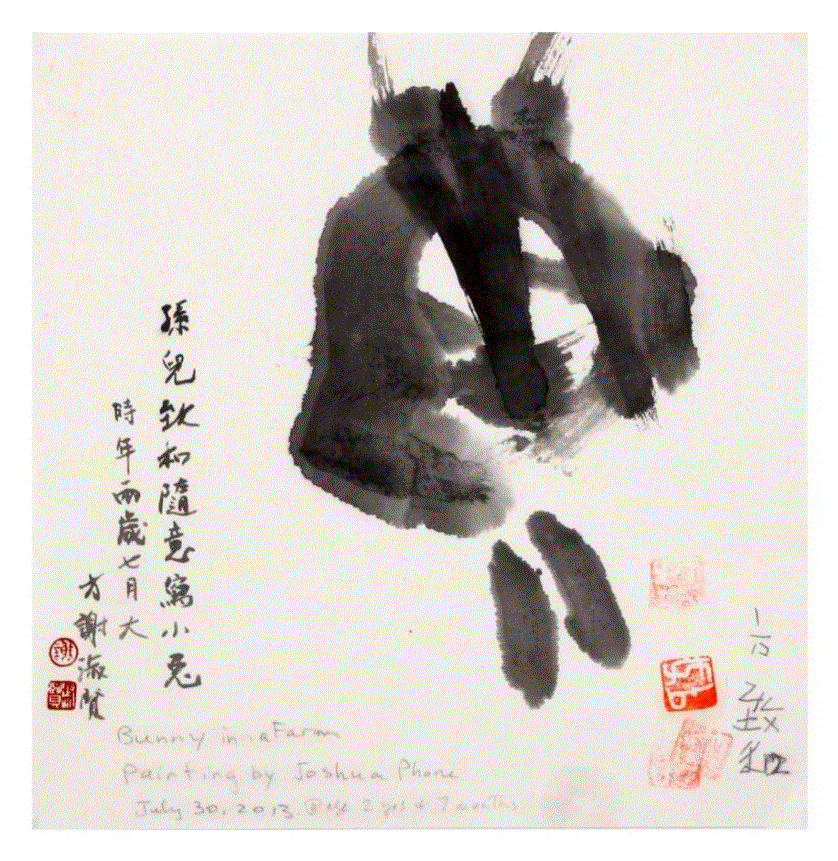 孫兒欽和隨意寫小兎
時年兩歲七月大
方謝淑賢
Bunny in a Farm
Painting by Joshua Phone
July 30, 2013. @ age 2 yrs & 7 months
方
欽和